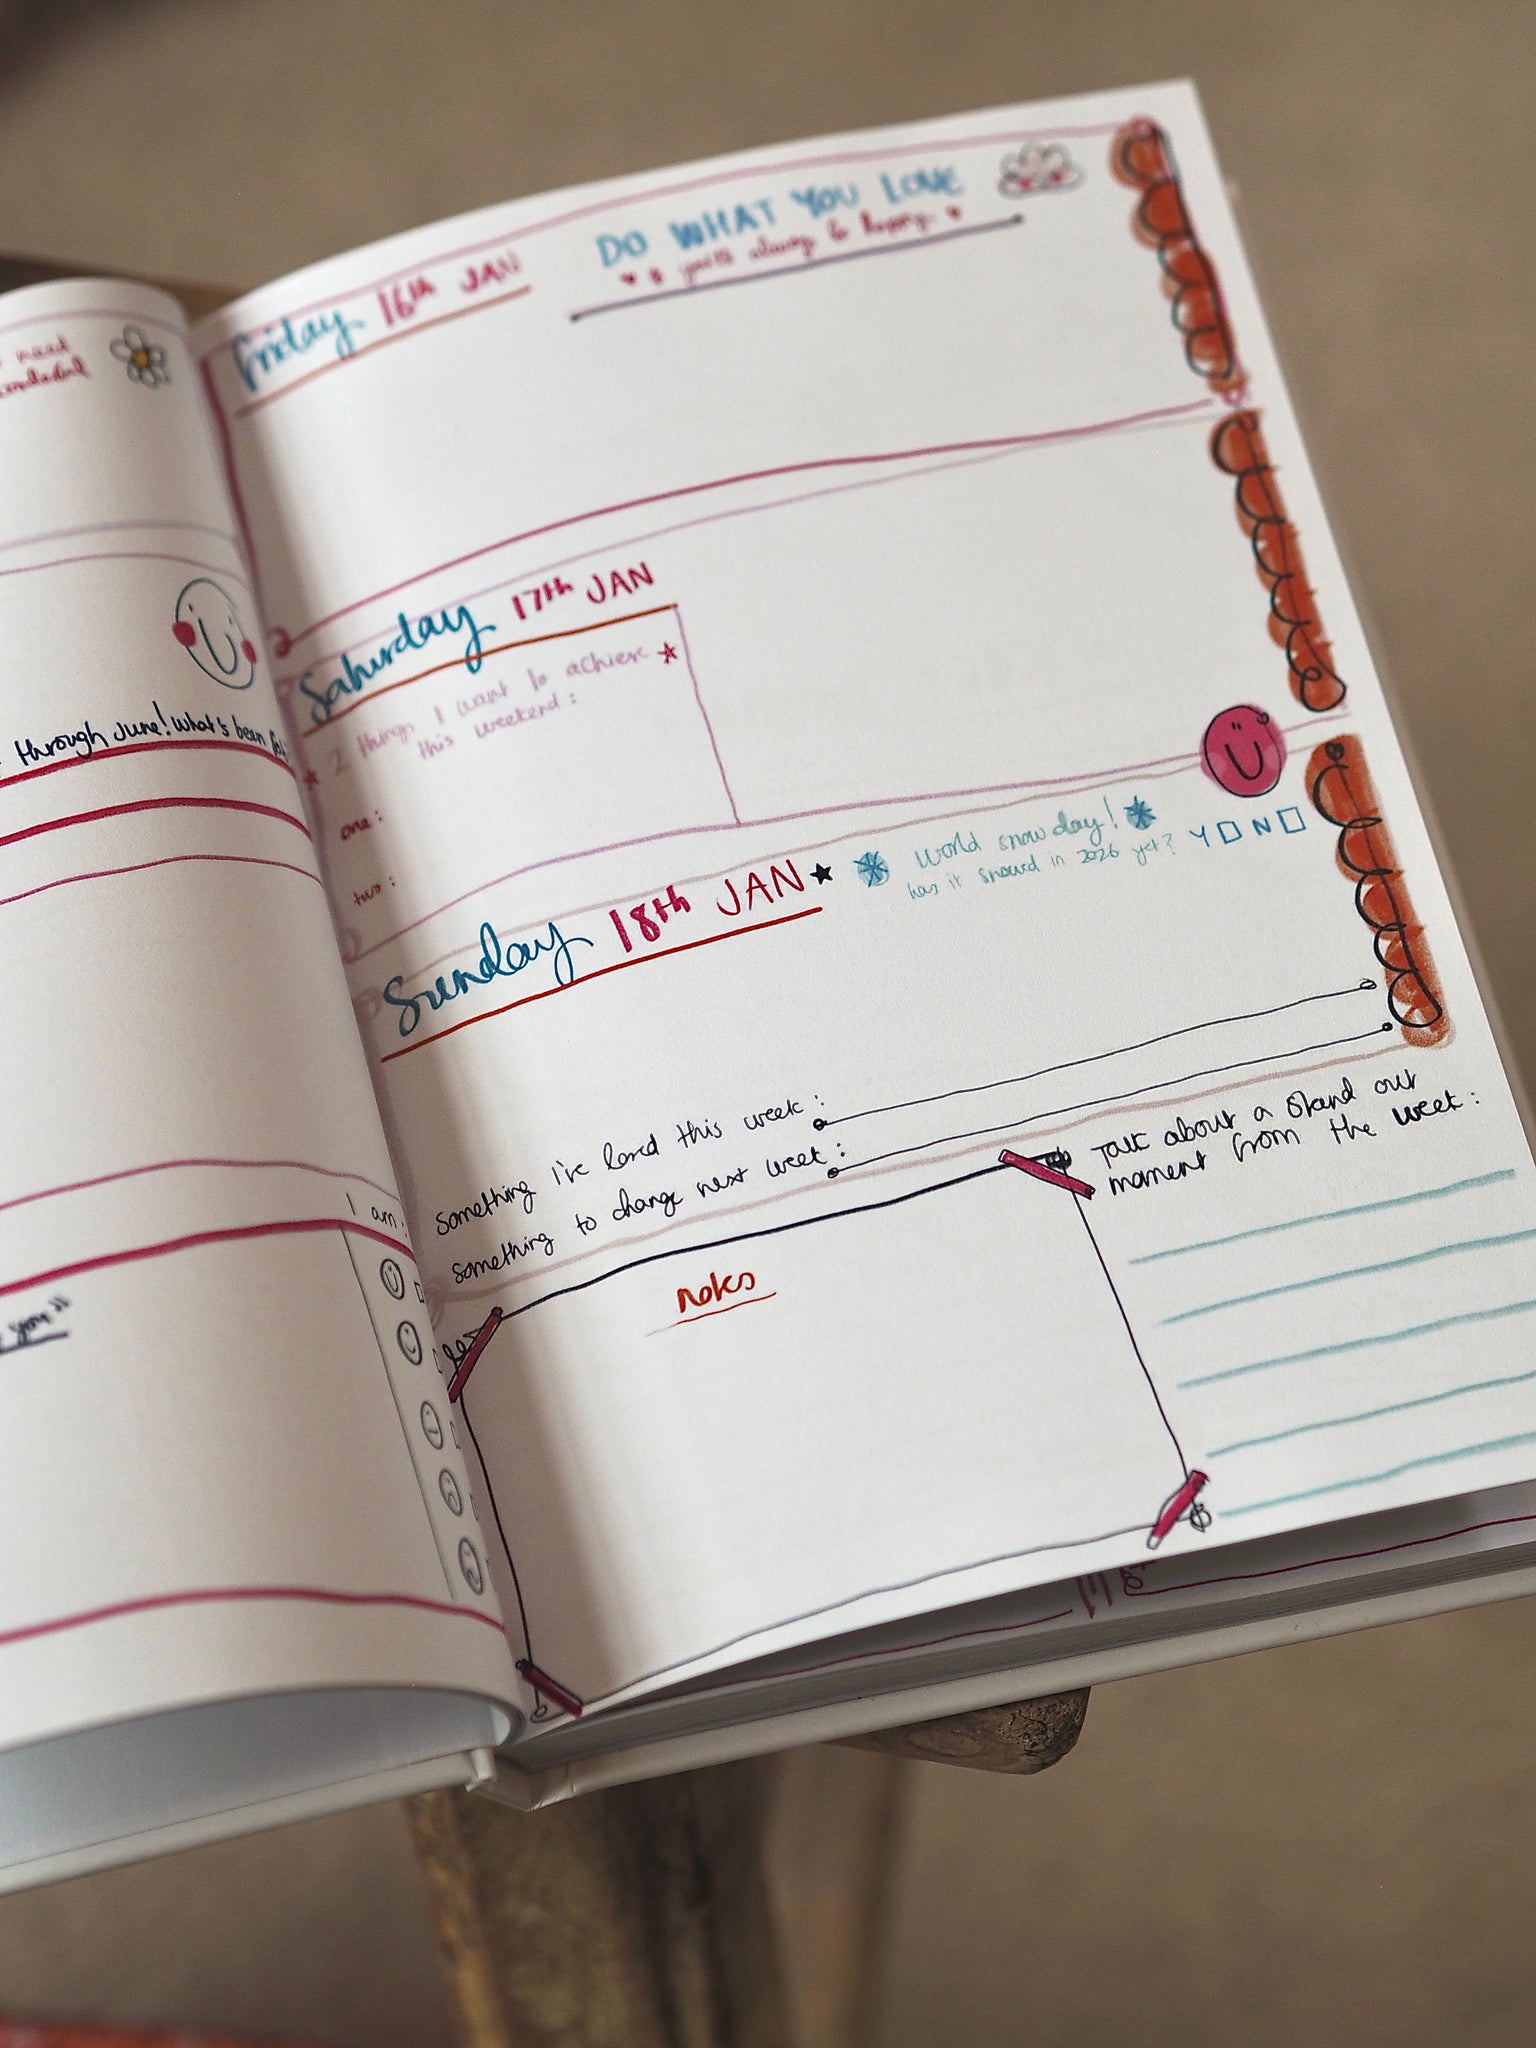 need
through June! What's been
I am
you"
Friday 16th JAN
DO WHAT YOU LOVE
& you'll always be happy.
Saturday 17th JAN
2 things I want to achieve
this weekend:
one:
two:
Sunday 18th JAN
World snow day!
has it snowed in 2026 yet? Y N
Something I've loved this week:
Something to change next week:
Talk about a stand out
moment from the week:
notes